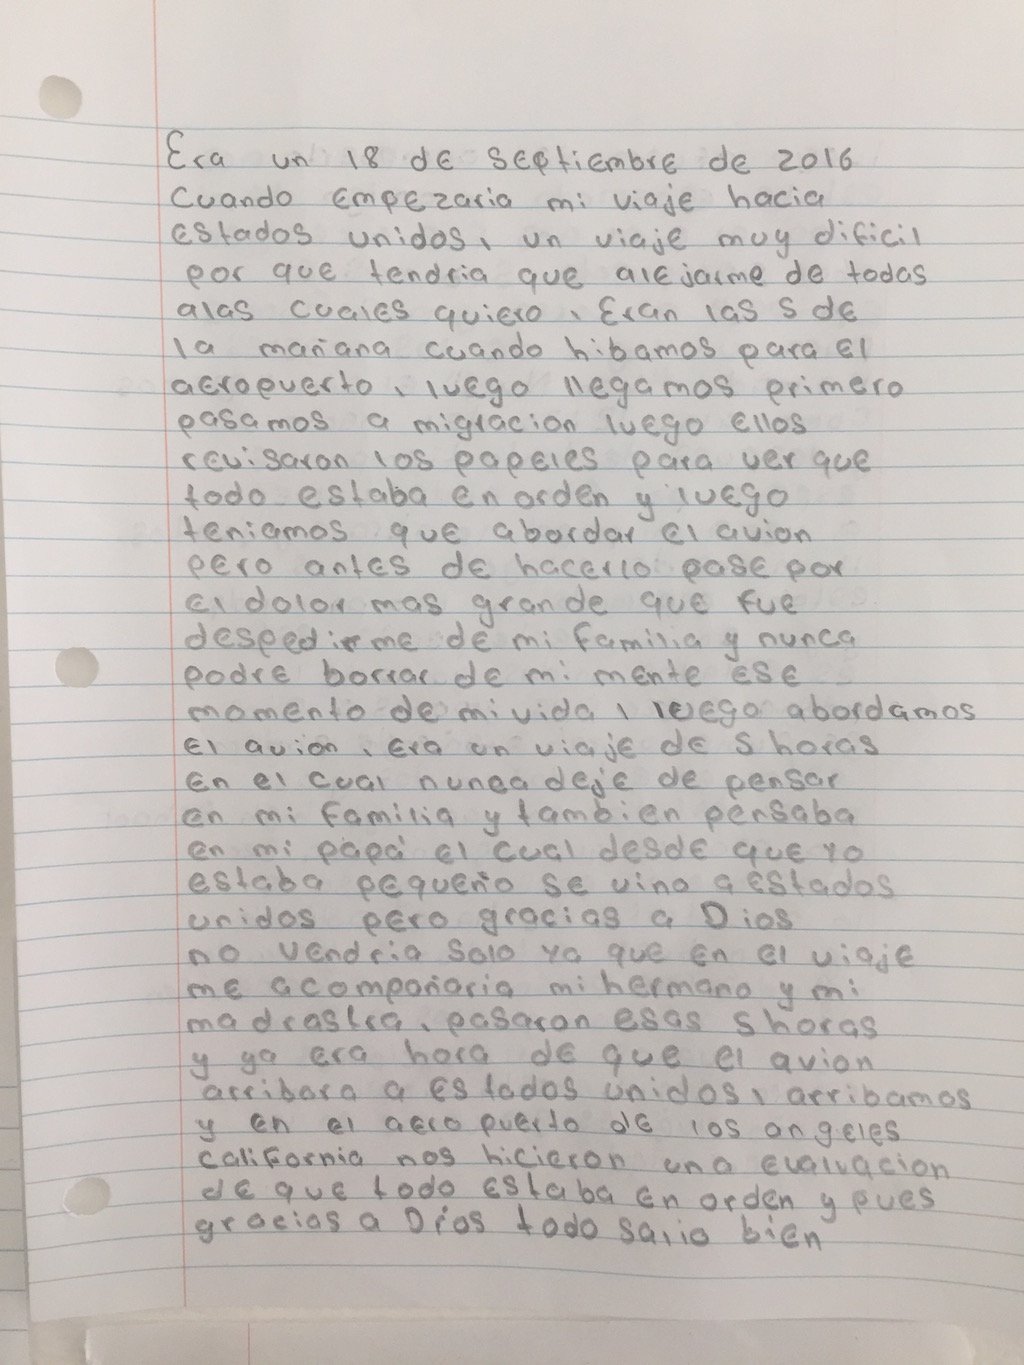 Era un 18 de Septiembre de 2016
Cuando empezaria mi viaje hacia
estados unidos, un viaje muy dificil
por que tendria que alejarme de todas
alas cuales quiero, Eran las 5 de
la mañana cuando hibamos para el
aeropuerto, luego llegamos primero
pasamos a migracion luego ellos
revisaron los papeles para ver que
todo estaba en orden y luego
teniamos que abordar el avion
pero antes de hacerlo pase por
el dolor mas grande que fue
despedirme de mi familia y nunca
podre borrar de mi mente ese
momento de mi vida, luego abordamos
el avion, era un viaje de 5 horas
en el cual nunca deje de pensar
en mi familia y tambien pensaba
en mi papá el cual desde que yo
estaba pequeño se vino a Estados
unidos pero gracias a Dios
no vendria solo ya que en el viaje
me acompañaria mi hermano y mi
madrastra, pasaron esas 5 horas
y ya era hora de que el avion
arribara a estados unidos, arribamos
y en el aero puerto de los angeles
california nos hicieron una evaluacion
de que todo estaba en orden y pues
gracias a Dios todo salio bien